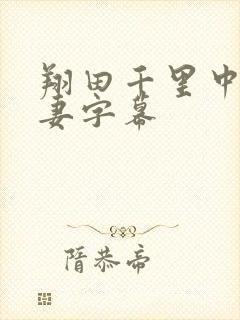 翔田千里中
妻字幕
隋恭帝